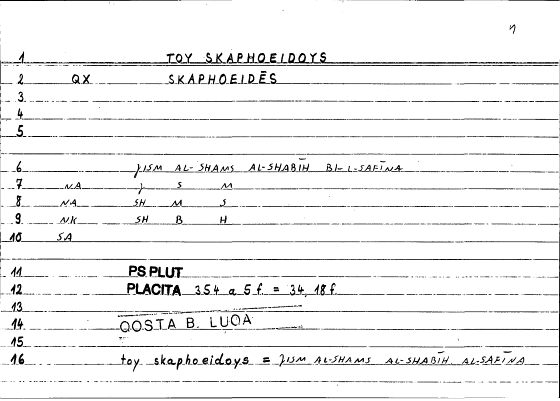 7
1 TOY SKAPHOEIDOYS
2 QX SKAPHOEIDĒS
3
4
5
6 JISM AL-SHAMS AL-SHABĪH BI-L-SAFĪNA
7 NA J S M
8 NA SH M S
9 NK SH B H
10 SA
11 PS PLUT
12 PLACITA 354 a 5 f. = 34, 18 f.
13
14 QOSTA B. LUQA
15
16 toy skaphoeidoys = JISM AL-SHAMS AL-SHABĪH AL-SAFĪNA